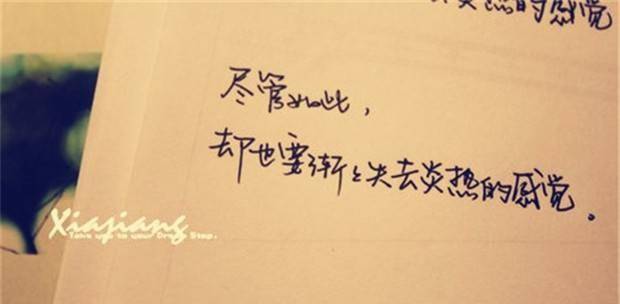 炎热的感觉
尽管如此，
却也要渐渐失去炎热的感觉。
Xiajiang
Take you to your Dream Stop.